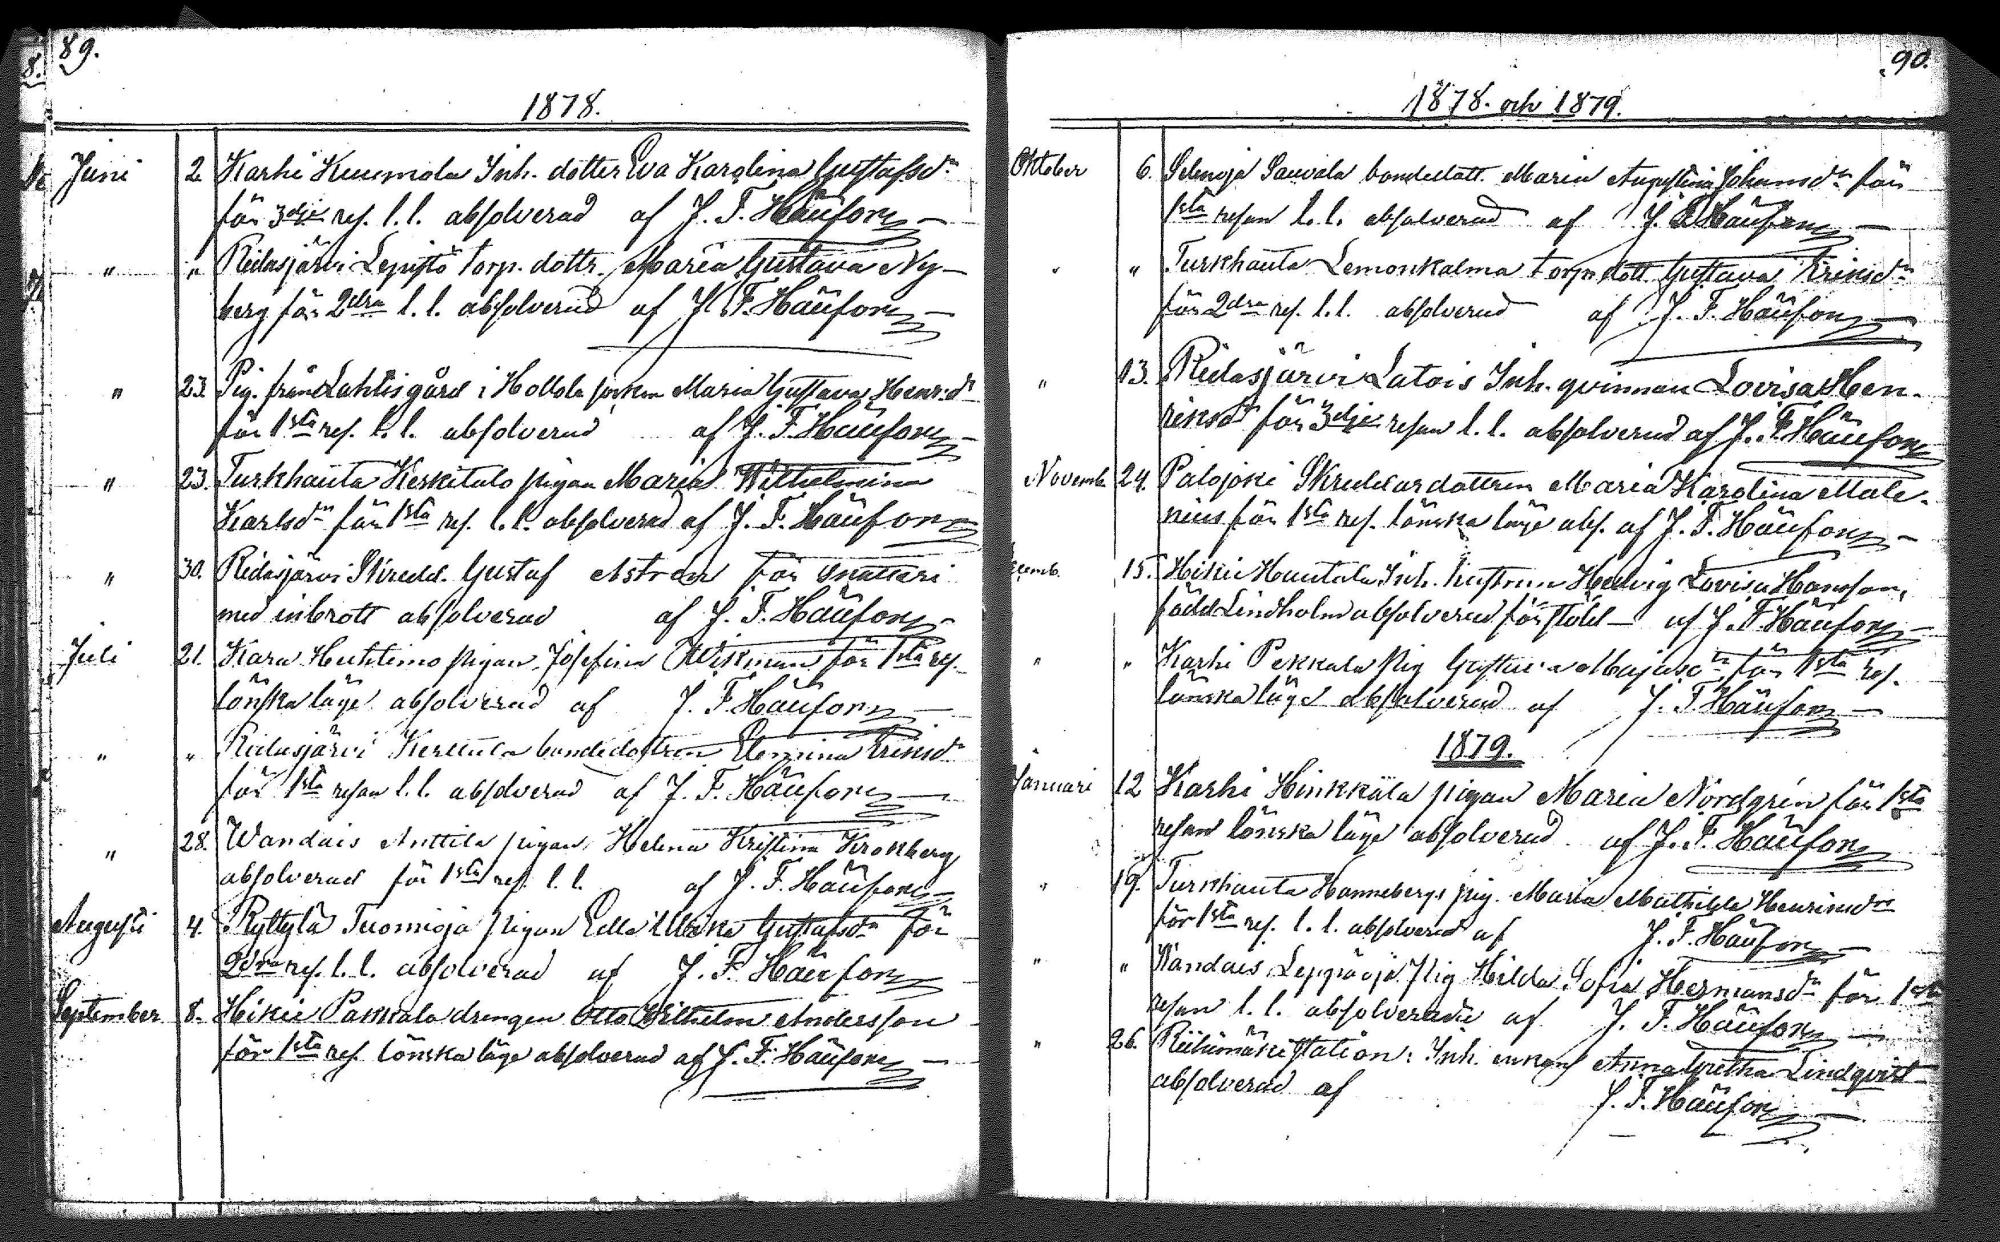 89.
1878.
Juni 2. Karhi Kuumola Inh. dotter Eva Karolina Gustafsdr
för 3dje res. l. l. absolverad af J. F. Häufom
" " Ridasjärvi Lepistö torp. dottr. Maria Gustava Ny-
berg för 2dra l. l. absolverad af J. F. Häufom
" 23. Pig. från Lahtis gård i Hollola socken Maria Gustava Henr.dr
för 1sta res. l. l. absolverad af J. F. Häufom
" 23. Turkhauta Keskitalo pigan Maria Wilhelmina
Karlsdr för 1sta res. l. l. absolverad af J. F. Häufom
" 30. Ridasjärvi Skredd. Gustaf Åström för snatteri
med inbrott absolverad af J. F. Häufom
Juli 21. Kara Huhtimo pigan Josefina Wikman för 1sta res.
lönska läge absolverad af J. F. Häufom
" " Ridasjärvi Kerttula bondedottren Elomina Eriksdr
för 1sta resan l. l. absolverad af J. F. Häufom
" 28. Wandais Anttila pigan Helena Kristina Krokberg
absolverad för 1sta res. l. l. af J. F. Häufom
Augusti 4. Ryttylä Tuomioja pigan Edla Ulrika Gustafsdr för
2dra res. l. l. absolverad af J. F. Häufom
September 8. Hikiä Passala drengen Otto Wilhelm Andersson
för 1sta res. lönska läge absolverad af J. F. Häufom
90.
1878. och 1879.
Oktober 6. Selinoja Sauvala bondedott. Maria Augustina Johansdr för
1sta resan l. l. absolverad af J. F. Häufom
" " Turkhauta Lemonkalma torp. dott. Gustava Eriksdr
för 2dra res. l. l. absolverad af J. F. Häufom
" 13. Ridasjärvi Latois Inh. qvinnan Lovisa Hen-
riksdr för 3dje resan l. l. absolverad af J. F. Häufom
Novemb. 24. Palojoki Skreddardottren Maria Karolina Male-
nius för 1sta res. lönska läge abs. af J. F. Häufom
cemb. 15. Hikiä Hautala Inh. hustrun Hedvig Lovisa Hansson,
född Lindholm absolverad för stöld af J. F. Häufom
" " Karhi Pekkala pig. för 1sta res.
lönska läge absolverad af J. F. Häufom
1879.
Januari 12 Karhi Hinkkala pigan Maria Nordgrén för 1sta
resan lönska läge absolverad af J. F. Häufom
" 19. Turkhauta Hannebergs pig. Maria Mathilda Henriksdr
för 1sta res. l. l. absolverad af J. F. Häufom
" " Wandais Leppäoja Pig. Hilda Sofia Hermansdr för 1sta
resan l. l. absolverad af J. F. Häufom
" 26. Riihimäki station: Inh. enkan Anna Gretha Lindqvist
absolverad af J. F. Häufom